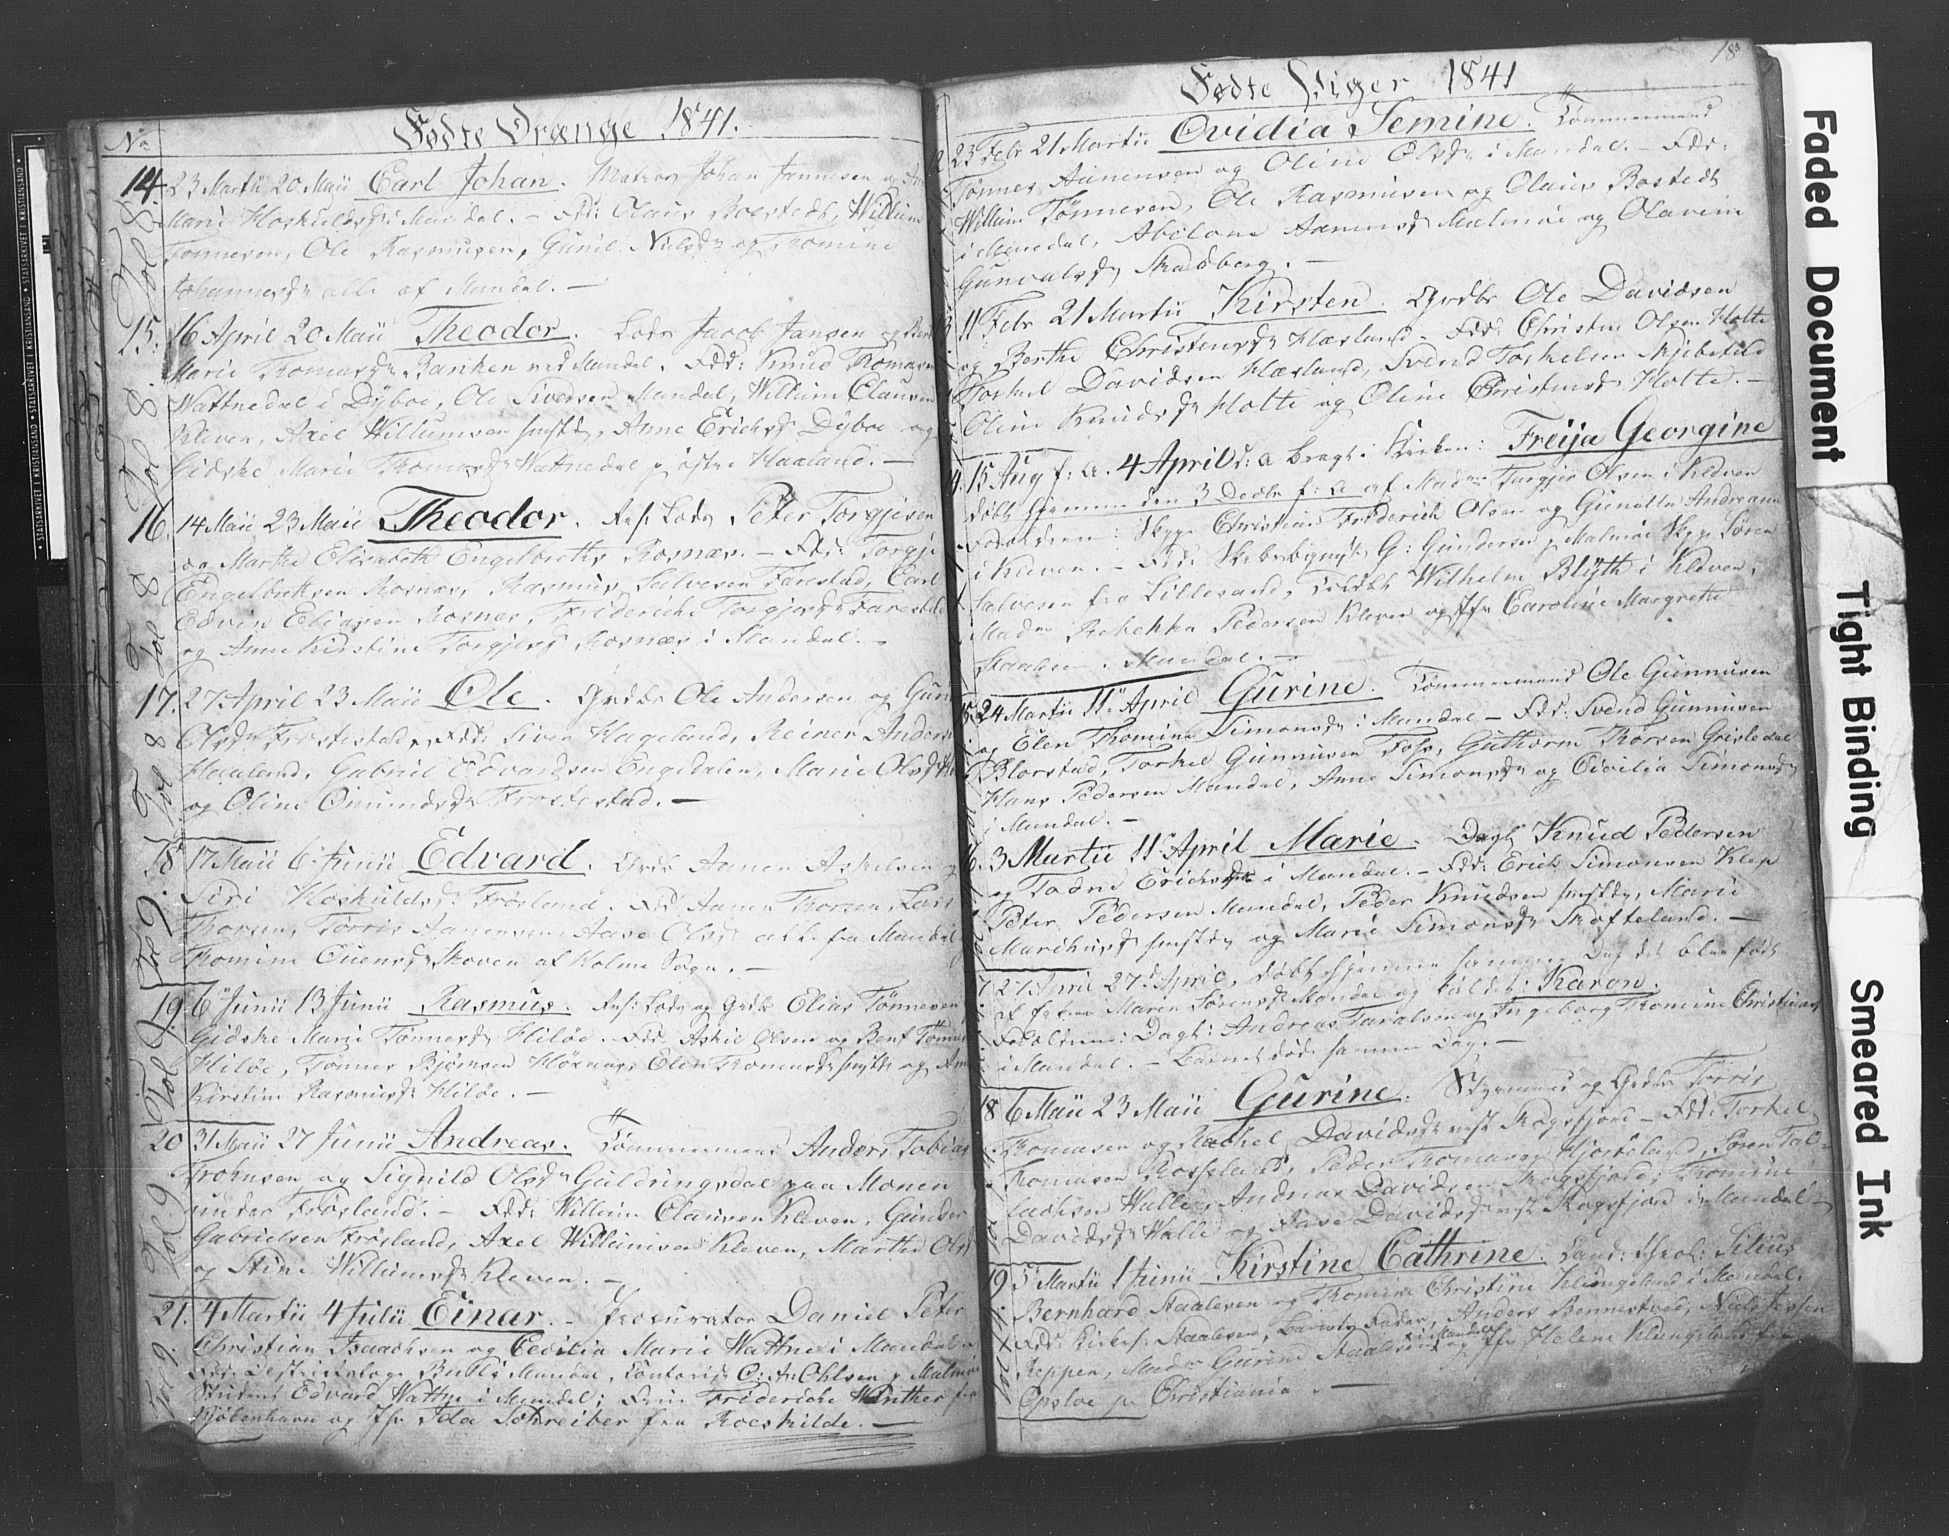 Fødte Drænge 1841.
No
14. 23 Martii 20 Maii Carl Johan. Matros Johan Jannesen og
Marie Hoskuldsdr i Mandal. – Fdd: Olaus Boestedt, Willum
Tønnesen, Ole Rasmusen, Gunil Nielsdr og Thomine
Johannesdr alle af Mandal. –
Fol 8.
15. 16 April 20 Maii Theodor. Lods Jacob Jansen og
Marie Thomasdr Banken ved Mandal. Fdd: Knud Thomasen
Wattnedal i Dÿboe, Ole Siversen Mandal, Willum Clausen
Kleven, Axel Willumsen smstds, Anne Ericksdr Dÿboe og
Gidske Marie Thomasdr Watnedal p østre Haaland. –
Fol 8.
16. 14 Maii 23 Maii Theodor. Res: Lods Peter Torgjusen
og Marthe Elisabeth Engelbreths Rosnæs. – Fdd: Torgju
Engelbrektsen Rosnæs, Rasmus Salvesen Farestad, Carl
Edvin Eliasen Rosnæs, Friderich Torgjusdr Farestad
og Anne Kirstine Torgjusdr Rosnæs i Mandal. –
Fol 8
17. 27 April 23 Maii Ole. Grdbr Ole Andersen og Guni
Olsdr Frøstestad, Fdd: Siven Hageland, Reiner Anders
Haaland, Gabriel Edvardsen Engedalen, Marie Olsdr
og Oline Omundsdr Frøstestad. –
Fol 8
18. 17 Maii 6te Junii Edvard. Grdb Aanen Askelsen og
Siri Hoskuldsdr Frøsland. Fdd: Aanen Thorsen, Lars
Thorsen, Tørris Aanensen, Aase Olsdr alle fra Mandal
Thomine Evensdr Skoven af Holme Sogn. –
Fol 9.
19. 6te Junii 13 Junii Rasmus. Res: Lods og Grdbr Elias Tønnesen
Gidske Marie Tønnesdr Hiløe. Fdd: Askil Olsen og Bent Tønnes
Hiløe, Tønnes Bjørnsen, Elen Thomasdr smstds og Ann
Kirstine Rasmusdr Hiløe. –
Fol 9
20 31 Maii 27 Junii Andreas. Tømmermand Anders Tobias
Trohnsen og Signild Olsdr Guldringsdal paa Monen
under Frøsland. – Fdd: Willum Clausen Kleven, Gunder
Gabrielsen Frøsland, Axel Willumsen Kleven, Marthe Olsd
og Stine Willumsdr Kleven. –
Fol 9
21. 4 Martii 4 Julii Einar. – Procurator Daniel Peter
Christian Isaachsen og Cecilia Marie Wattne i Mandal.
Fdd: Destriktslæge i Mandal, Contorist C: A: Ohlsen p Malmøe
Student Edvard Wattne i Mandal; Frue Friderikke Winther fra
Kjøbenhavn og Jfr Ida Schreiber fra Roeskilde. –
Fol 9.
18
Fødte Piger 1841
23 Febr 21 Martii Ovidia Semine. Tømmermand
Tønnes Aanensen og Oline Olsdr i Mandal. – Fdd:
Willum Tønnesen, Ole Rasmusen og Olaus Bostedt
i Mandal, Abelone Aanensdr Malmøe og Olavine
Gunvalsdr Skadberg. –
11 Febr 21 Martii Kirsten. Grdbr Ole Davidsen
og Berthe Christensdr Hæsland. Fdd: Christen Olsen Holte
Torkel Davidsen Hæsland, Svend Torkelsen Skjebstad
Oline Knudsdr Holte og Oline Christensdr Holte. –
15 Aug f: A. 4 April d: a bragt i Kirken: Freija Georgine
døbt hjemme den 3 Decbr f: A af Madme Torgju Olsen i Kleven
Forældrene: Skpr Christian Friderich Olsen og Gunille Andreane
i Kleven. – Fdd: Skibsbigmstr G: Gundersen p Malmøe, Skpr Søren
Salvesen fra Lillesand, Toldbt Wilhelm Blÿth i Kleven,
Madme Rebekka Pedersen Kleven og Jfr Caroline Margrethe
Staalsen i Mandal. –
24 Martii 11te April Gurine. Tømmermand Ole Gunnusen
og Elen Thomine Simonsdr i Mandal – Fdd: Svend Gunnusen
Blørstad, Torkel Gunnusen Foss, Guthorm Thorsen Grisledal
Hans Pedersen Mandal, Anne Simonsdr og Cicilia Simonsdr
i Mandal. –
3 Martii 11te April Marie. Dagl Knud Pedersen
og Todne Ericksdr i Mandal. – Fdd: Erich Simonsen Klep
Peter Pedersen Mandal, Peder Knudsen smstds, Marie
smstds og Marie Simonsdr Skofteland. –
27 April 27de April, døbt hjemme samme Dag det blev født
af Maren Sørensdr Mandal og kaldet: Karen.
Forældrene: Dagl: Andreas Taralsen og Ingeborg Thomine Christians
i Mandal. – Barnet døde samme Dag. –
18 6 Maii 23 Maii Gurine. Styrmand og Grdbr Tørris
Thomasen og Rachel Davidsdr vest Skogsfjord – Fdd: Torkel
Thomasen Rosseland, Peder Thomasen Hjorteland, Søren Tal-
laksen Walle, Andreas Davidsen Skogsfjord, Thomine
Davidsdr Walle og Aase Davidsdr vest Skogsfjord i Mandal –
19 5 Martii 1 Junii Kirstine Cathrine. Cand: theol: Silius
Bernhard Staalesen og Thomine Christine Klungeland i Mandal.
Fdd: Kirkes: Staalesen, Barnets Fader, Anders Bennestved, Niels Jessen
Reppen, Madme Gurine Staalesen og Jfr Helene Klungeland fra
Opsloe p Christiania. –
Faded Document
Tight Binding
Smeared Ink
STATSARKIVET I KRISTIANSAND • STATSARKIVET I KRISTIANSAND • STATSARKIVET I KRISTIANSAND